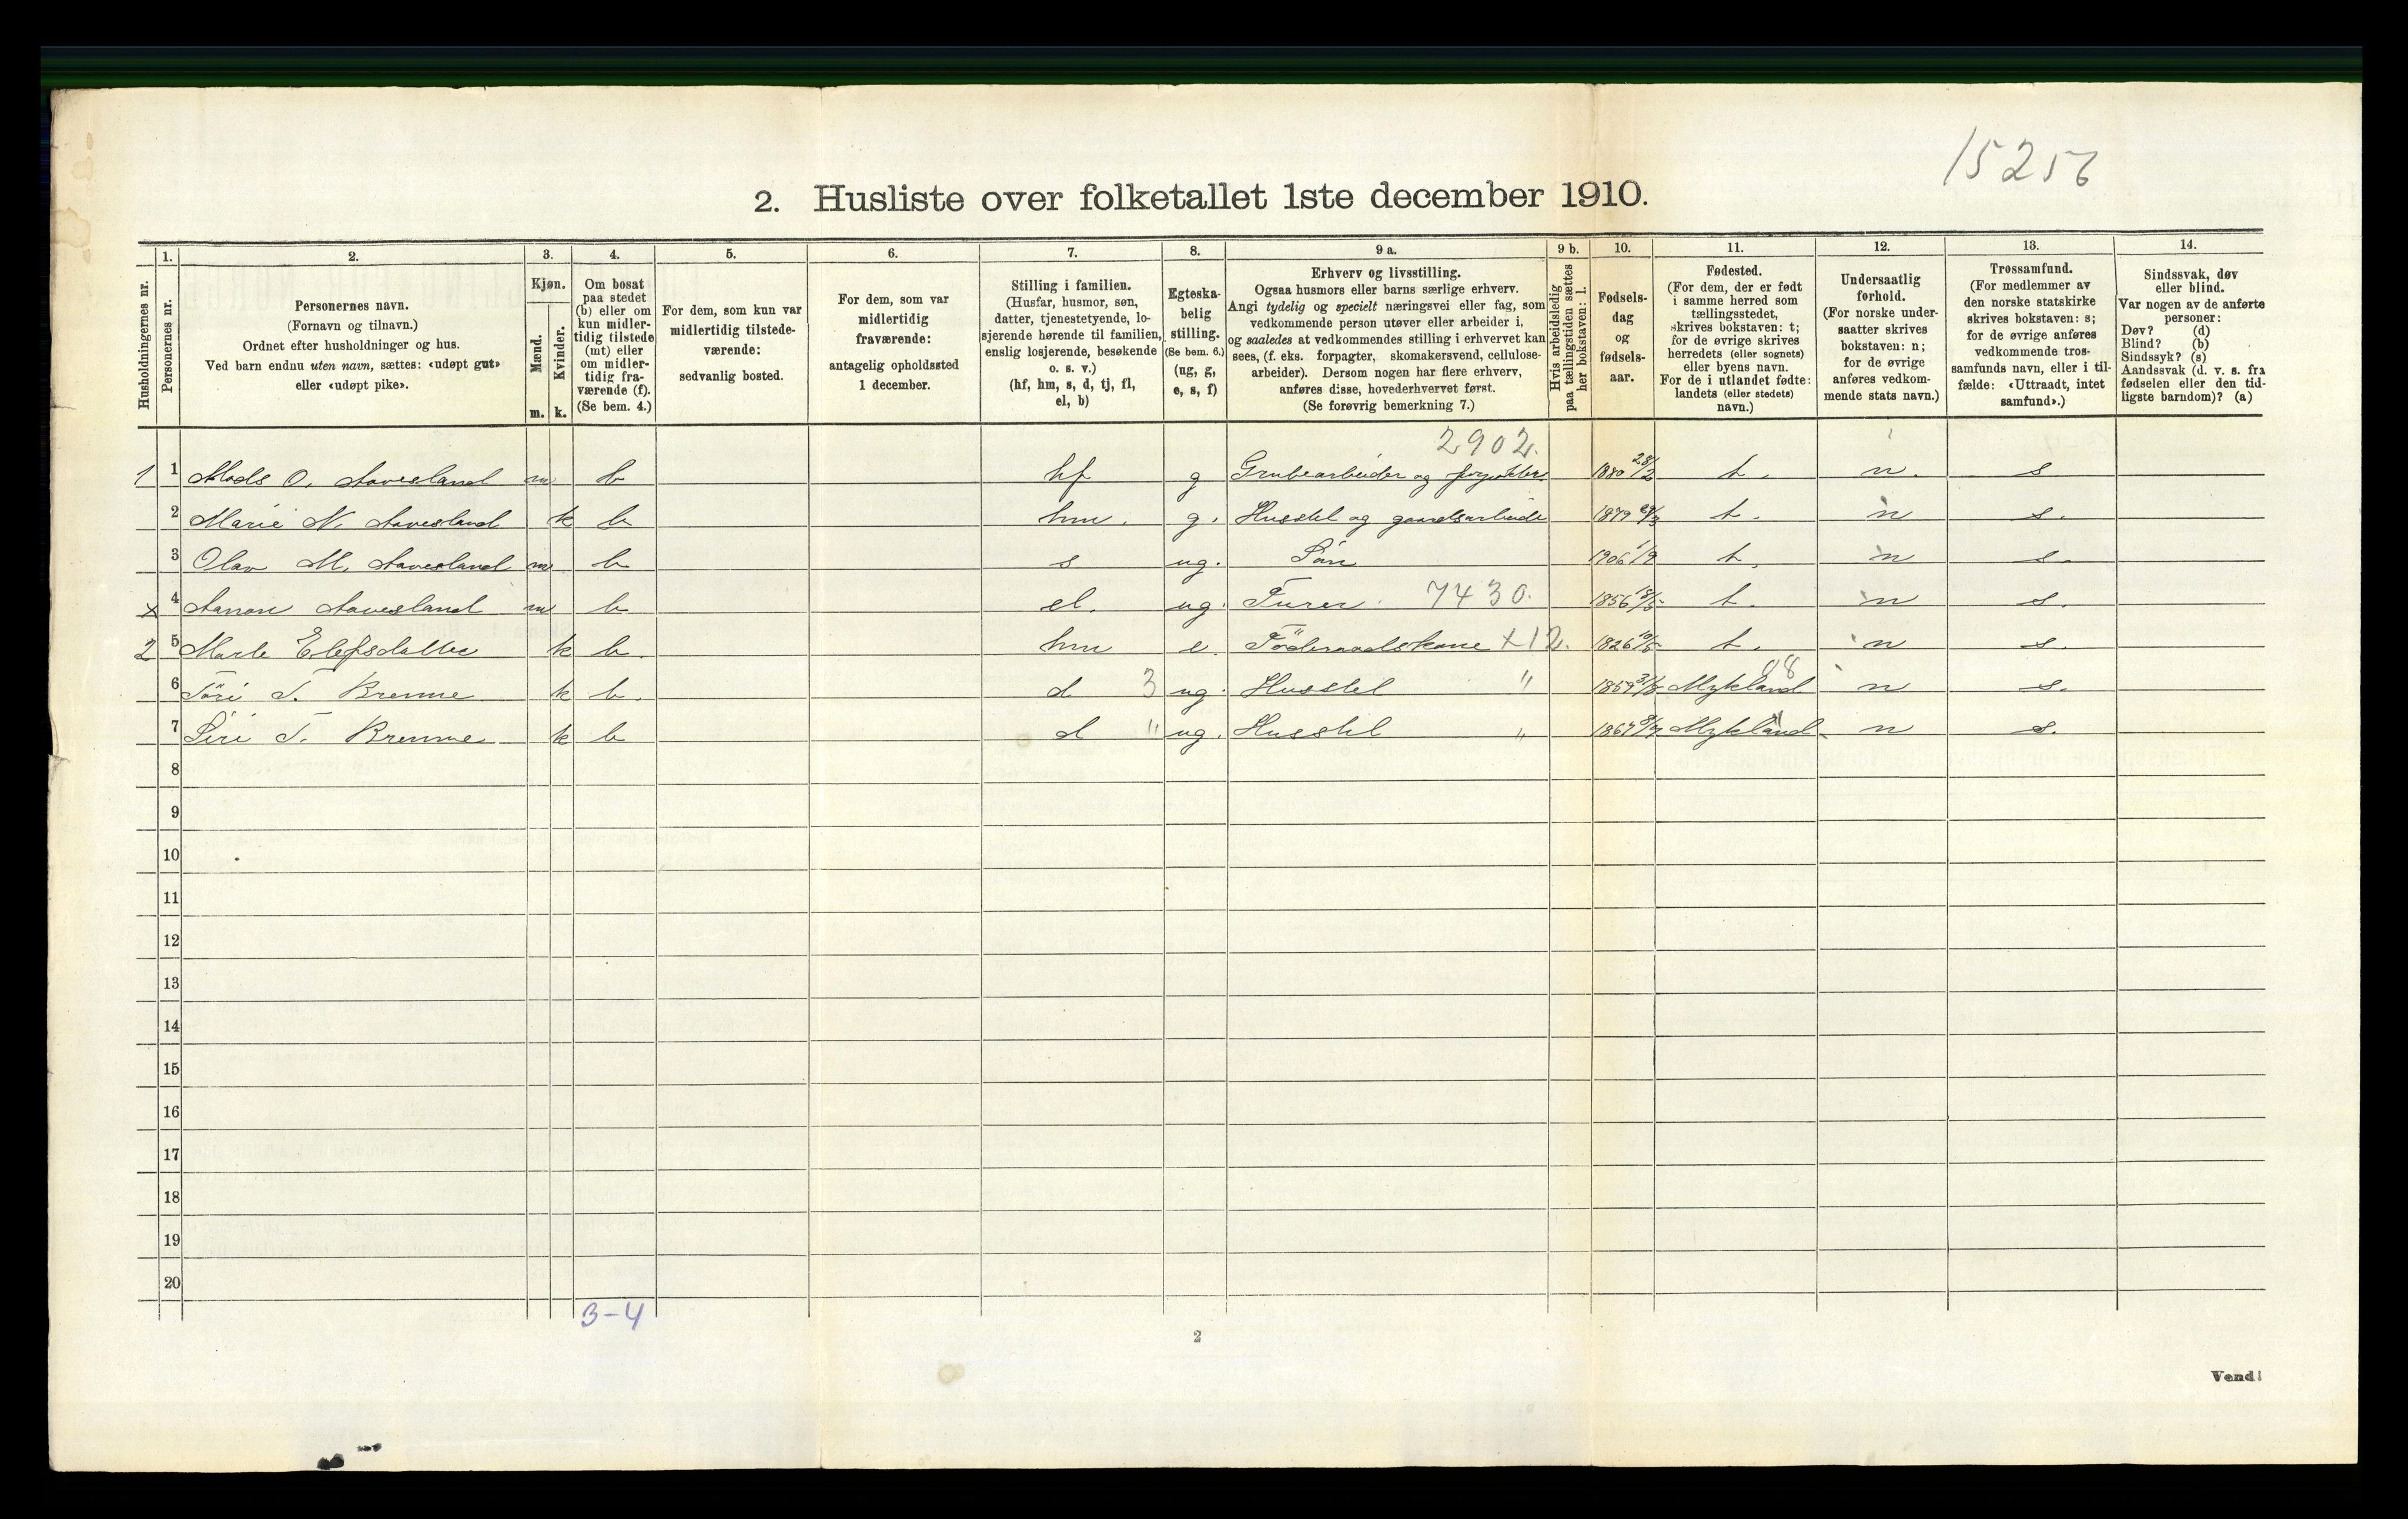 15256
2. Husliste over folketallet 1ste december 1910.
Husholdningernes nr.
1.
Personernes nr.
2.
Personernes navn.
(Fornavn og tilnavn.)
Ordnet efter husholdninger og hus.
Ved barn endnu uten navn, sættes: «udøpt gut»
eller «udøpt pike».
3.
Kjøn.
Mænd.
Kvinder.
m. k.
4.
Om bosat
paa stedet
(b) eller om
kun midler-
tidig tilstede
(mt) eller
om midler-
tidig fra-
værende (f).
(Se bem. 4.)
5.
For dem, som kun var
midlertidig tilstede-
værende:
sedvanlig bosted.
6.
For dem, som var
midlertidig
fraværende:
antagelig opholdssted
1 december.
7.
Stilling i familien.
(Husfar, husmor, søn,
datter, tjenestetyende, lo-
sjerende hørende til familien,
enslig losjerende, besøkende
o. s. v.)
(hf, hm, s, d, tj, fl,
el, b)
8.
Egteska-
belig
stilling.
(Se bem. 6.)
(ug, g,
e, s, f)
9 a.
Erhverv og livsstilling.
Ogsaa husmors eller barns særlige erhverv.
Angi tydelig og specielt næringsvei eller fag, som
vedkommende person utøver eller arbeider i,
og saaledes at vedkommendes stilling i erhvervet kan
sees, (f. eks. forpagter, skomakersvend, cellulose-
arbeider). Dersom nogen har flere erhverv,
anføres disse, hovederhvervet først.
(Se forøvrig bemerkning 7.)
9 b.
Hvis arbeidsledig
paa tællingstiden sættes
her bokstaven: l.
10.
Fødsels-
dag
og
fødsels-
aar.
11.
Fødested.
(For dem, der er født
i samme herred som
tællingsstedet,
skrives bokstaven: t;
for de øvrige skrives
herredets (eller sognets)
eller byens navn.
For de i utlandet fødte:
landets (eller stedets)
navn.)
12.
Undersaatlig
forhold.
(For norske under-
saatter skrives
bokstaven: n;
for de øvrige
anføres vedkom-
mende stats navn.)
13.
Trossamfund.
(For medlemmer av
den norske statskirke
skrives bokstaven: s;
for de øvrige anføres
vedkommende tros-
samfunds navn, eller i til-
fælde: «Uttraadt, intet
samfund».)
14.
Sindssvak, døv
eller blind.
Var nogen av de anførte
personer:
Døv? (d)
Blind? (b)
Sindssyk? (s)
Aandssvak (d. v. s. fra
fødselen eller den tid-
ligste barndom)? (a)
2902.
1 1 Mads O. Aavesland m b hf g Grubearbeider og 1880 28/2 t. n. s
2 Marie N. Aavesland k b hm. g. Husstel og gaardsarbeide 1879 t. n s.
3 Olav M. Aavesland m b s ug. Sön 1906 1/9 t. n s.
x 4 Aanon Aavesland m b el. ug. 7430. 1856 18/5 t. n s.
2 5 k b. hm e. Föderaadskone x12. 1826 10/5 t. n s.
98
6 Töri T. Brenne k b. d 3 ug. Husstel " 1859 31/8 Mykland n s.
7 Siri T. Brenne k b d " ug. Husstel " 1867 Mykland n s.
8
9
10
11
12
13
14
15
16
17
18
19
20
3-4
2
Vend!